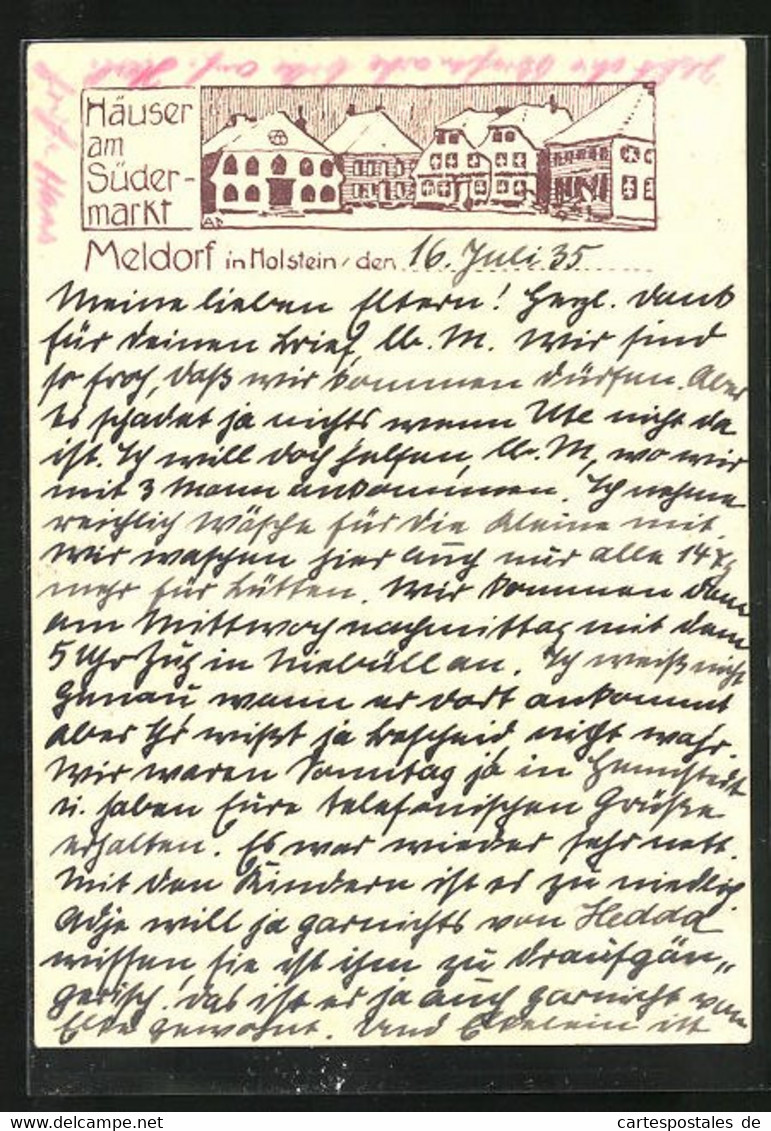 Häuser
am
Süder-
markt
Meldorf in Holstein, den 16. Juli 35
Meine lieben Eltern! Herzl. Dank
für deinen Brief, lb. M. Wir sind
so froh, daß wir kommen dürfen. Aber
es schadet ja nichts wenn Ute nicht da
ist. Ich will doch helfen, lb. M, wo wir
mit 3 Mann ankommen. Ich nehme
reichlich Wäsche für die Kleine mit.
Wir waschen hier auch nur alle 14 Tg
mehr für Lütten. Wir kommen dann
am Mittwoch nachmittag mit dem
5 Uhr Zug in Niebüll an. Ich weiß nicht
genau wann er dort ankommt
aber Ihr wißt ja Bescheid nicht wahr.
Wir waren Sonntag ja in Hennstedt
u. haben Eure telefonischen Grüße
erhalten. Es war wieder sehr nett.
Mit den Kindern ist es zu niedlich.
Adje will ja garnichts von Hedda
wissen, sie ist ihm zu draufgän„
gerisch. Das ist er ja auch garnicht von
Elke gewohnt. Und Ekelein ist
cartespostales de